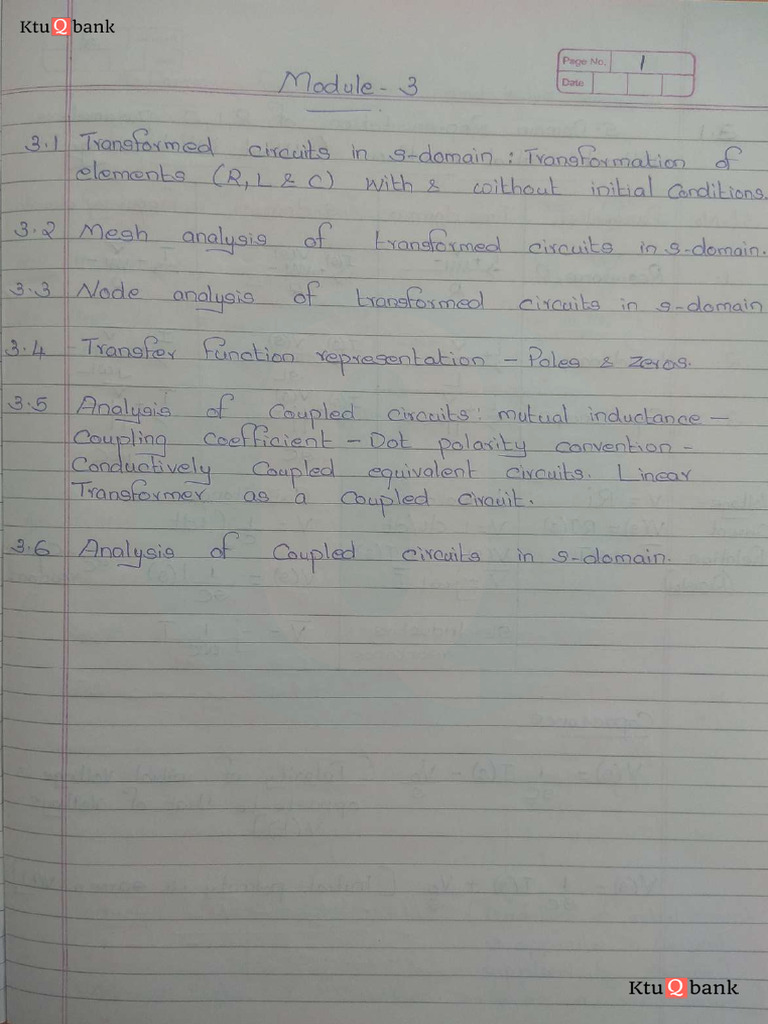 Ktu Q bank
Page No. 1
Date
Module - 3
3.1 Transformed circuits in s-domain : Transformation of
elements (R, L & C) with & without initial Conditions.
3.2 Mesh analysis of transformed circuits in s-domain.
3.3 Node analysis of transformed circuits in s-domain
3.4 Transfer Function representation - Poles & zeros.
3.5 Analysis of Coupled circuits: mutual inductance -
Coupling Coefficient - Dot polarity convention -
Conductively Coupled equivalent circuits. Linear
Transformer as a Coupled Circuit.
3.6 Analysis of Coupled circuits in s-domain.
Ktu Q bank